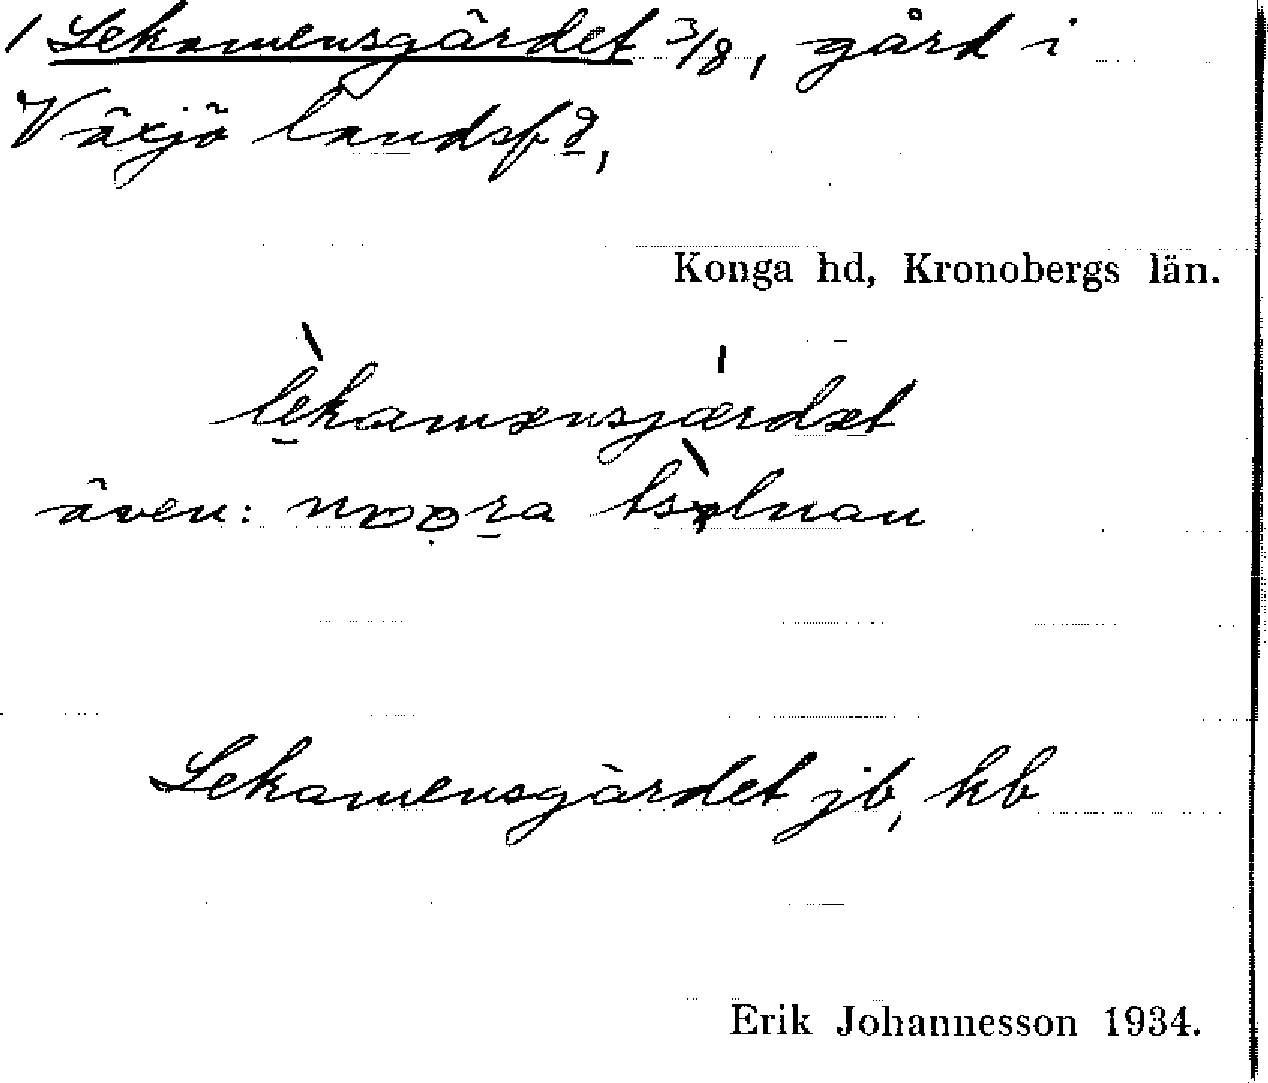 1 Lekamensgärdet 3/8, gård i
Växjö landsf d,
Konga hd, Kronobergs län.
lèkamænsjærdæt
även:
Lekamensgärdet jb, kb
Erik Johannesson 1934.